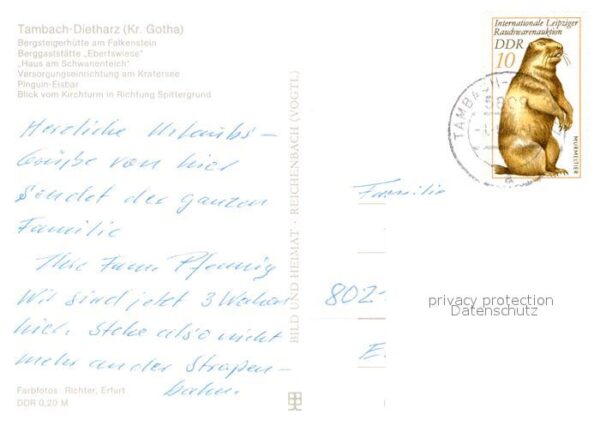 Tambach-Dietharz (Kr. Gotha)
Bergsteigerhütte am Falkenstein
Berggaststätte „Ebertswiese"
„Haus am Schwanenteich"
Versorgungseinrichtung am Kratersee
Pinguin-Eisbar
Blick vom Kirchturm in Richtung Spittergrund
Herzliche Urlaubs-
Grüße von hier
sendet der ganzen
Familie
Ihre Fam. Pfennig
Wir sind jetzt 3 Wochen
hier. Stehe also nicht
mehr an der Straßen-
bahn.
Farbfotos: Richter, Erfurt
DDR 0,20 M
BILD UND HEIMAT · REICHENBACH (VOGTL)
Internationale Leipziger
Rauchwarenauktion
DDR
10
MURMELTIER
TAMBACH-
Familie
802
E
privacy protection
Datenschutz